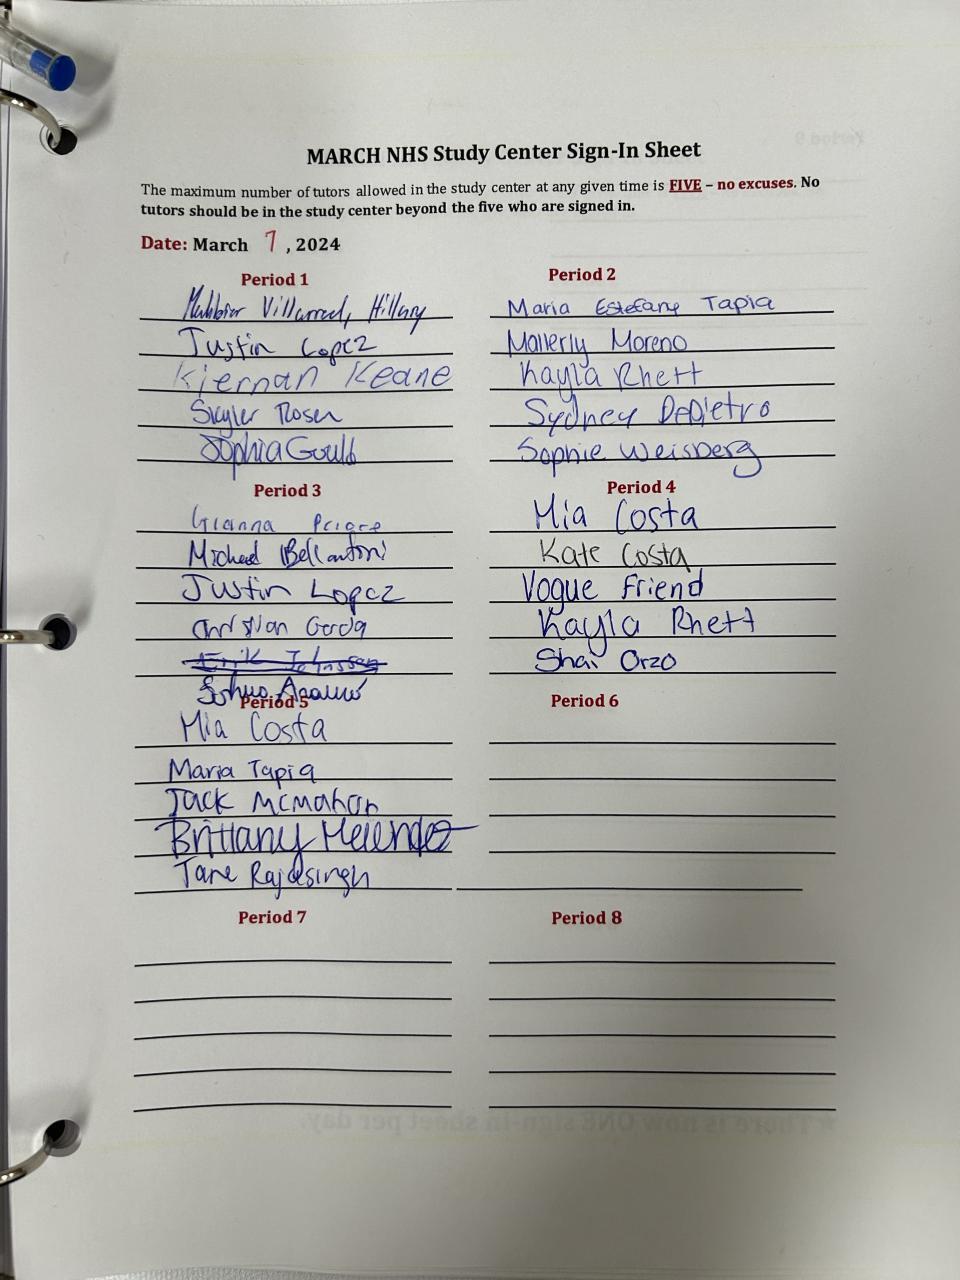 MARCH NHS Study Center Sign-In Sheet
The maximum number of tutors allowed in the study center at any given time is FIVE – no excuses. No
tutors should be in the study center beyond the five who are signed in.
Date: March 7, 2024
Period 1
Hillary
Justin Lopez
Kiernan Keane
Skyler Rosen
Sophia Gould
Period 2
Maria Estefany Tapia
Mallerly Moreno
Kayla Rhett
Sydney DePietro
Sophie Weisberg
Period 3
Gianna Priore
Michael Bellantoni
Justin Lopez
Christian
Erik Johnssen
Period 4
Mia Costa
Kate Costa
Vogue Friend
Kayla Rhett
Shai Orzo
Period 5
Mia Costa
Maria Tapia
Jack McMahon
Brittany Melendez
Jane Rajasingh
Period 6
Period 7
Period 8